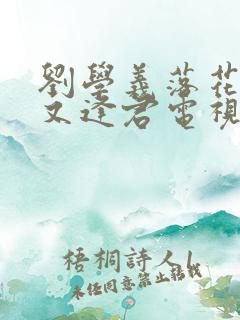 劉學義落花
又逢君電視
梧桐詩人l
未经同意禁止转载